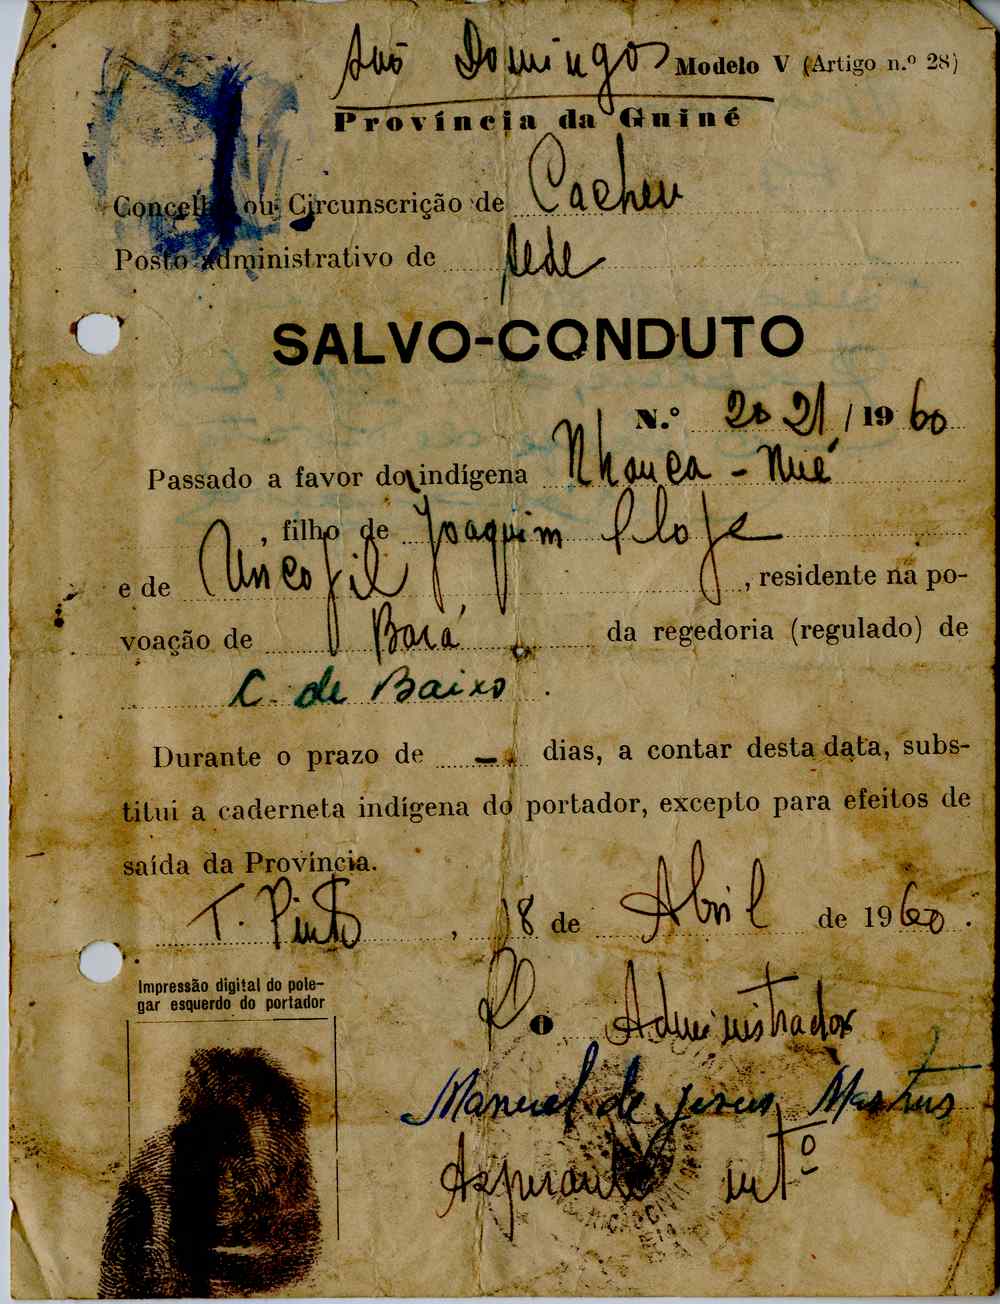 São Domingos Modelo V (Artigo n.º 28)
Província da Guiné
Concelho ou Circunscrição de Cacheu
Posto Administrativo de sede
SALVO-CONDUTO
N.º 2021/1960
Passado a favor do indígena Nhanca - Nué
, filho de Joaquim
e de , residente na po-
voação de Bará da regedoria (regulado) de
C. de Baixo .
Durante o prazo de - dias, a contar desta data, subs-
titui a caderneta indígena do portador, excepto para efeitos de
saída da Província.
T. Pinto , 18 de Abril de 1960.
Impressão digital do pole-
gar esquerdo do portador
O Administrador
Manuel de Jesus
Aspirante intº